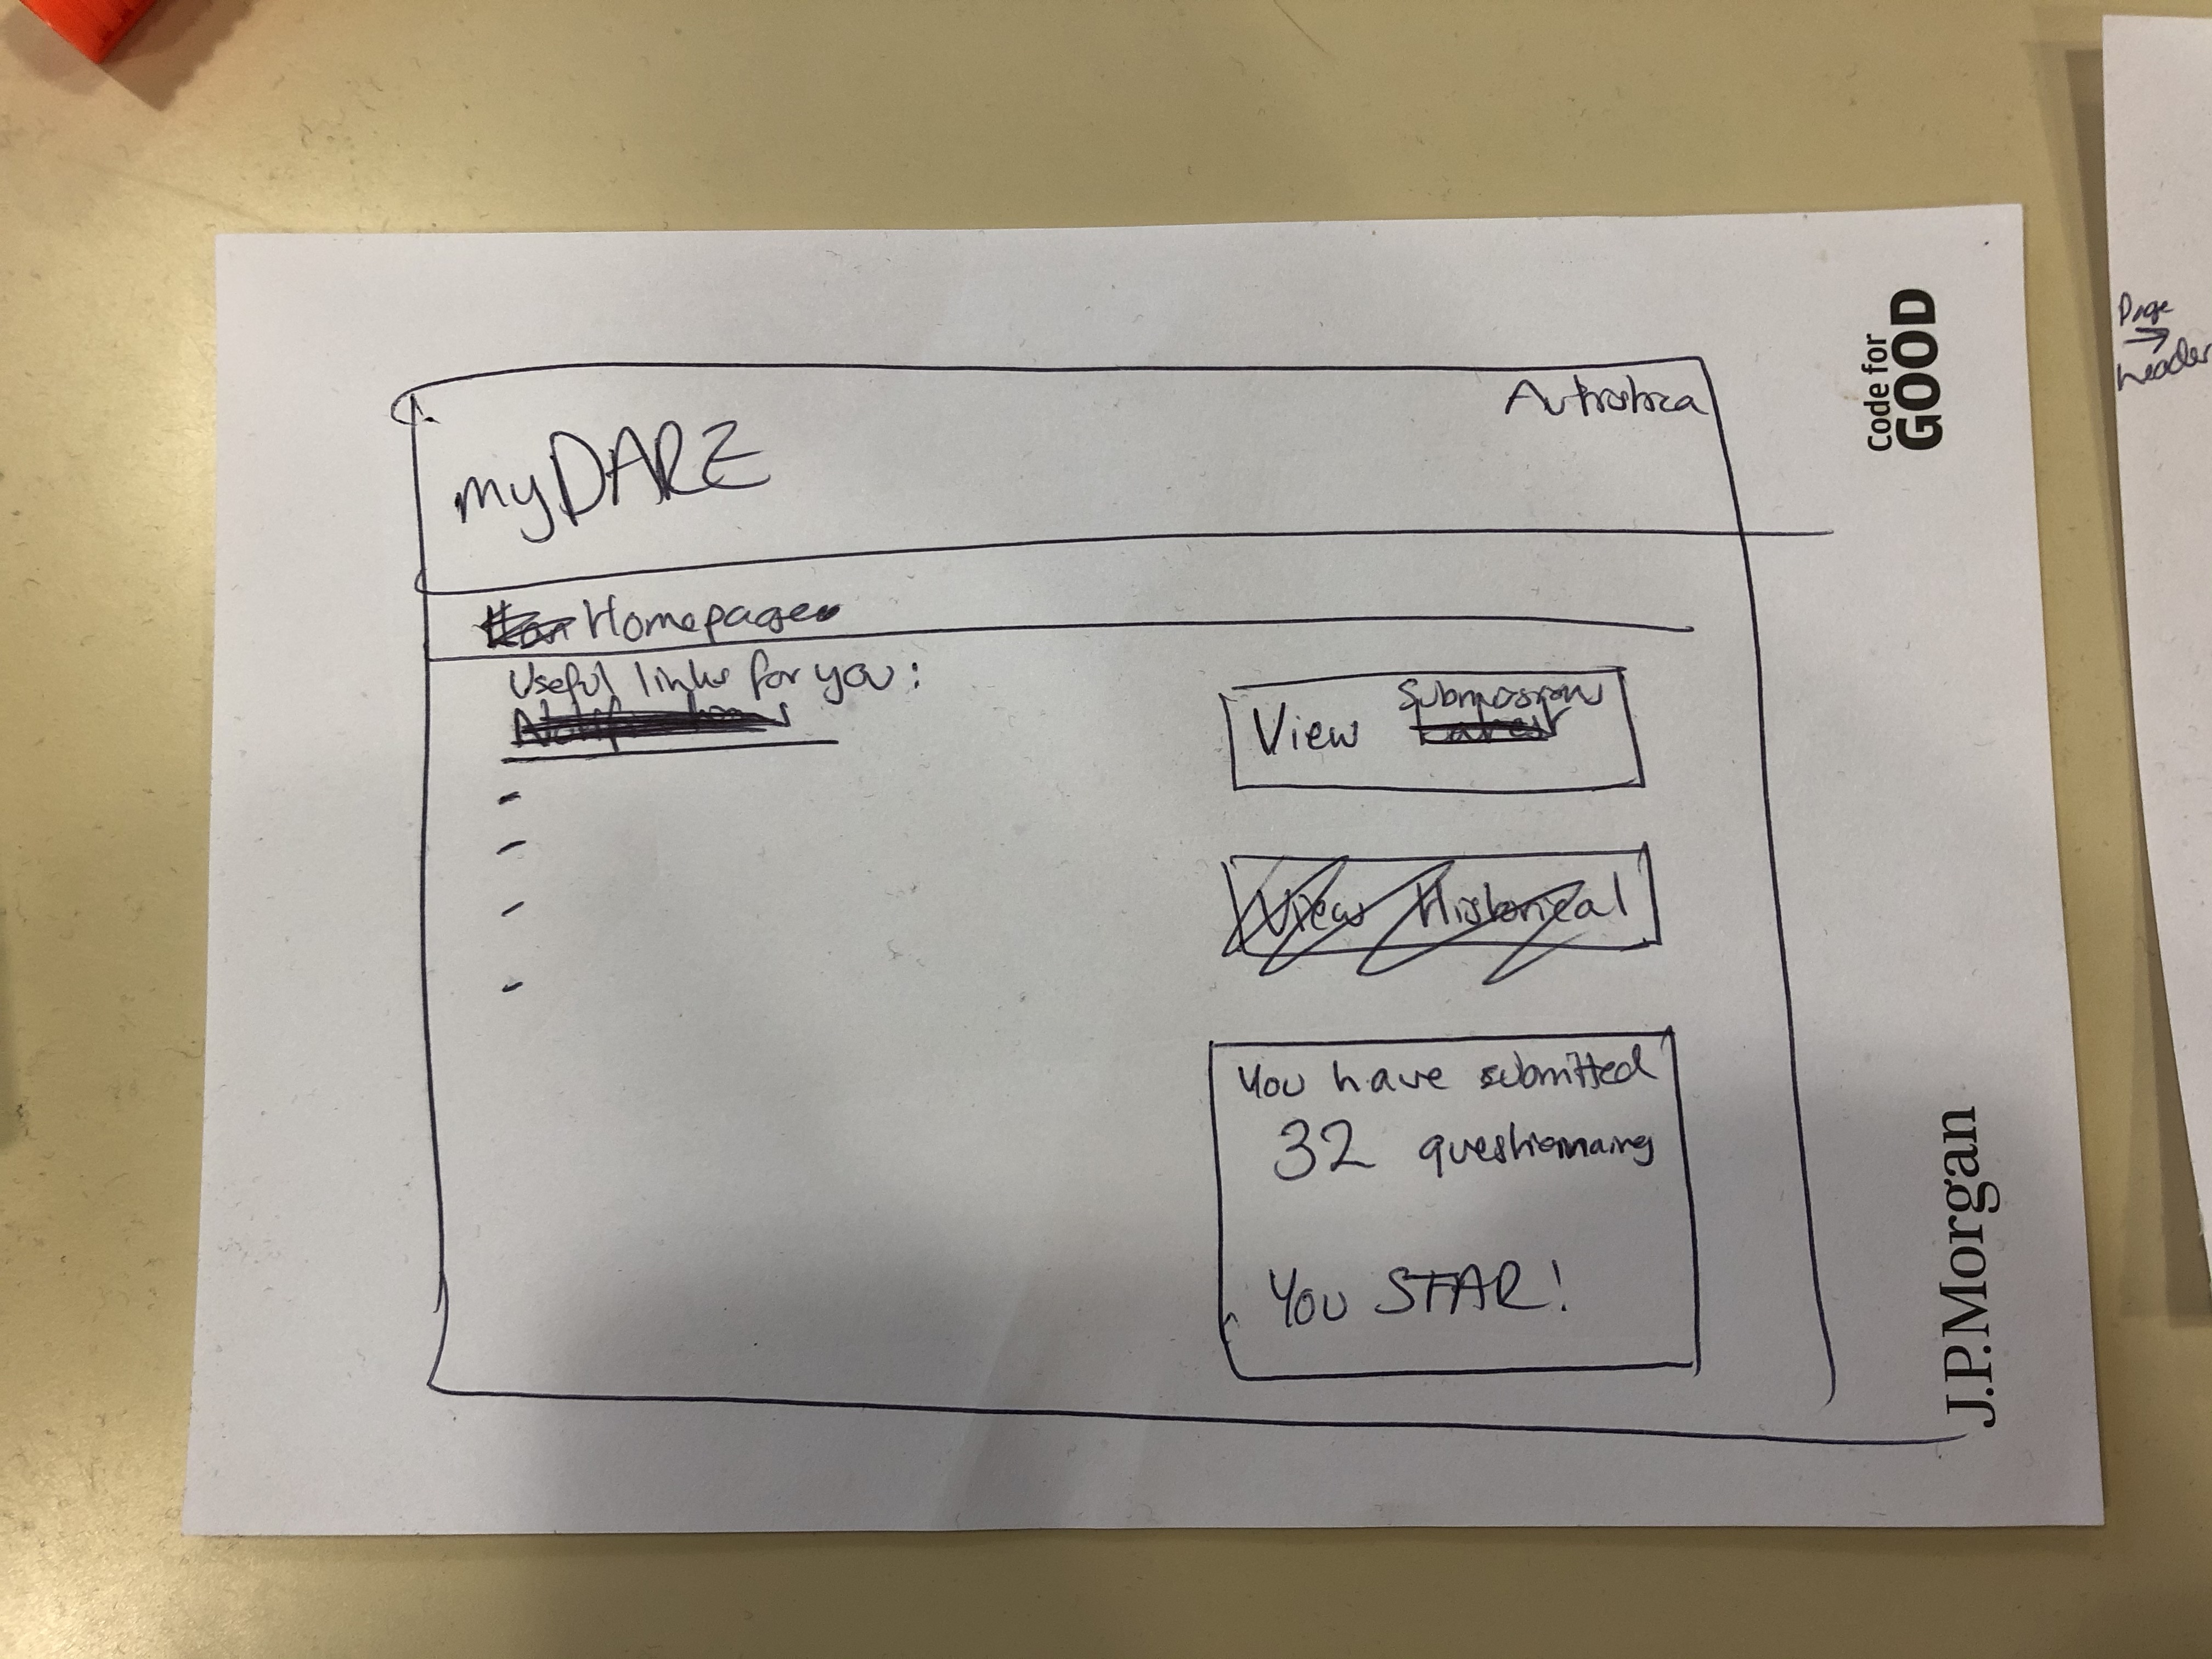 myDARE
Autistica
Homepage
Useful links for you:
View Submissions
View Historical
You have submitted
32 questionnaires
You STAR!
Code for
GOOD
J.P.Morgan
Page
→
header